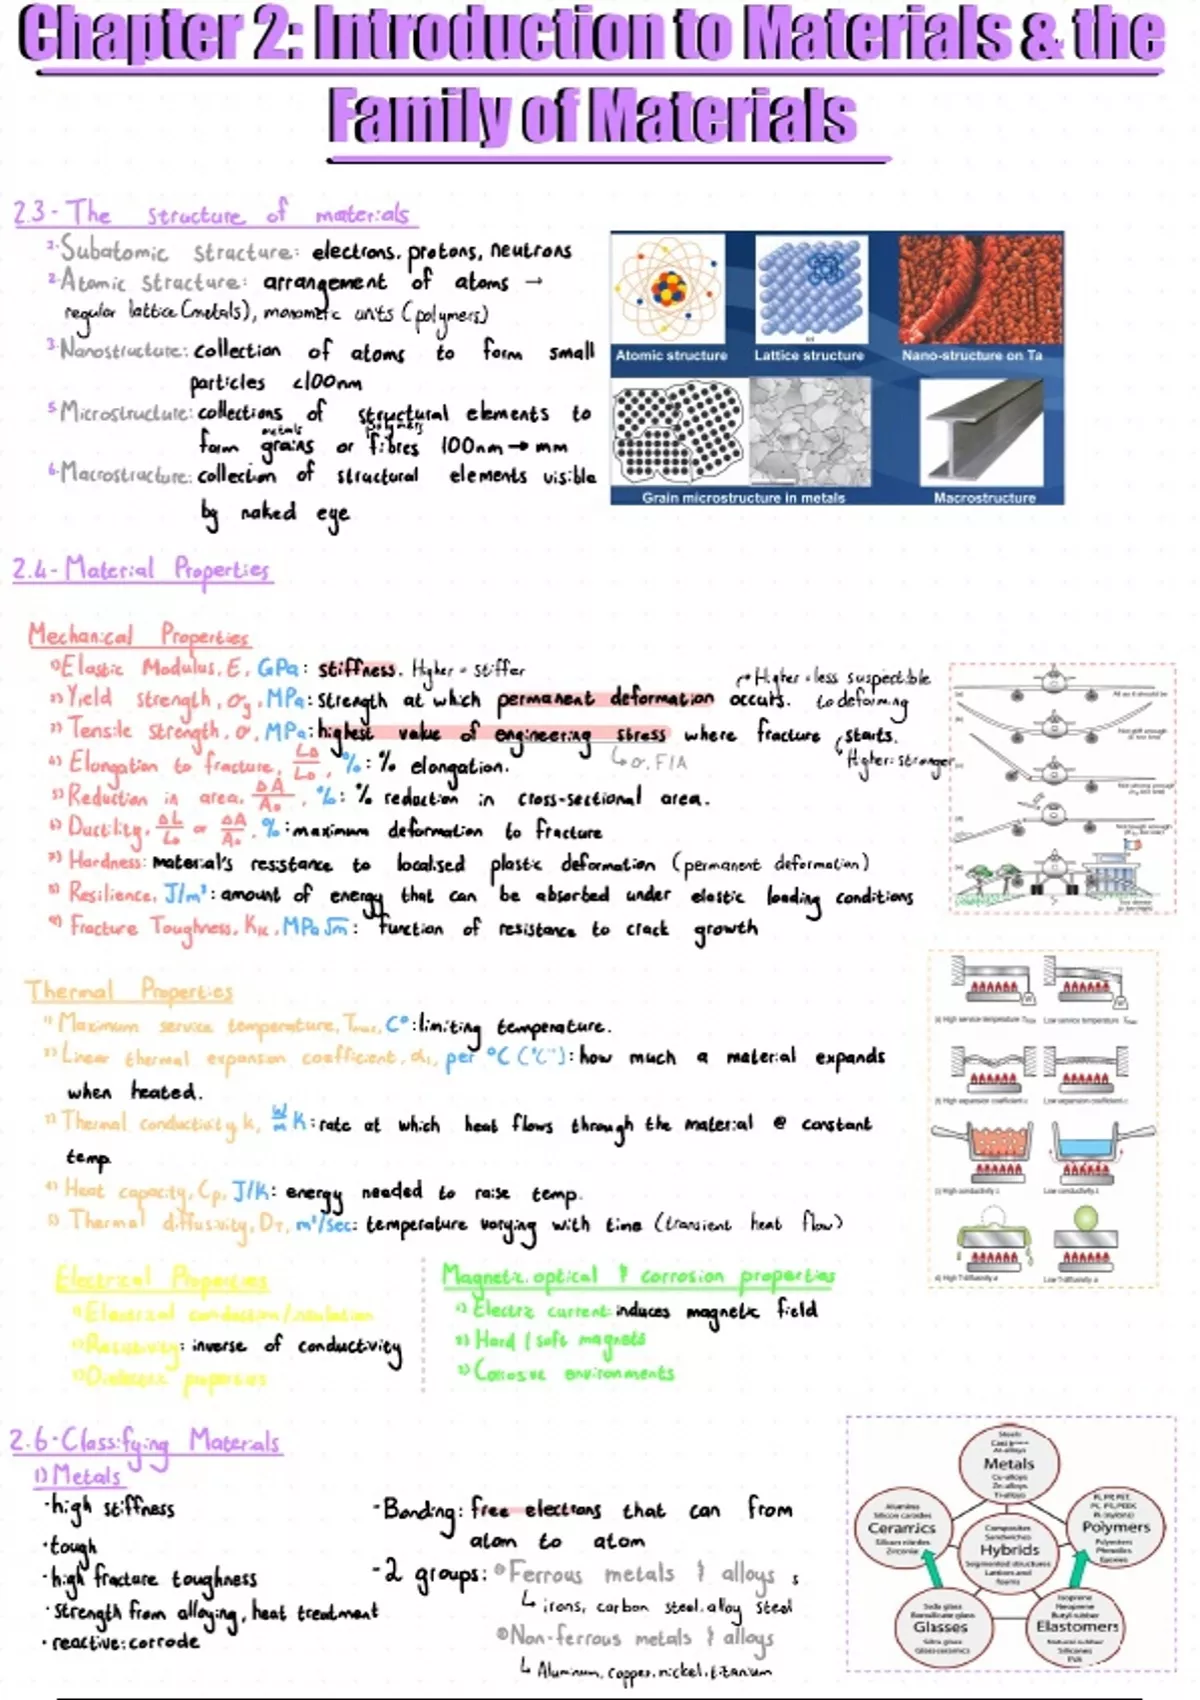 Chapter 2: Introduction to Materials & the
Family of Materials
2.3 - The structure of materials
1. Subatomic structure: electrons, protons, neutrons
2. Atomic structure: arrangement of atoms →
regular lattice (metals), monomeric units (polymers)
3. Nanostructure: collection of atoms to form small
particles <100nm
5. Microstructure: collections of structural elements to
metals polymers
form grains or fibres 100nm → mm
6. Macrostructure: collection of structural elements visible
by naked eye
Atomic structure
Lattice structure
Nano-structure on Ta
Grain microstructure in metals
Macrostructure
2.4 - Material Properties
Mechanical Properties
1) Elastic Modulus, E, GPa: stiffness. Higher = stiffer
→ Higher = less suspectible
2) Yield strength, σy, MPa: strength at which permanent deformation occurs. to deforming
3) Tensile strength, σ, MPa: highest value of engineering stress where fracture starts.
↳ σ, F/A
Higher: stronger
4) Elongation to fracture, %: % elongation.
5) Reduction in area, ΔA/A₀, %: % reduction in cross-sectional area.
6) Ductility, ΔL/L₀ or ΔA/A₀, %: maximum deformation to fracture
7) Hardness: material's resistance to localised plastic deformation (permanent deformation)
8) Resilience, J/m³: amount of energy that can be absorbed under elastic loading conditions
9) Fracture Toughness, K₁c, MPa√m: function of resistance to crack growth
Thermal Properties
1) Maximum service temperature, Tmax, C°: limiting temperature.
2) Linear thermal expansion coefficient, α₁, per °C (°C⁻¹): how much a material expands
when heated.
3) Thermal conductivity k, W/m K: rate at which heat flows through the material @ constant
temp
4) Heat capacity, Cp, J/K: energy needed to raise temp.
5) Thermal diffusivity, DT, m²/sec: temperature varying with time (transient heat flow)
(a) High service temperature Tmax
Low service temperature Tmax
(b) High expansion coefficient α
Low expansion coefficient α
(c) High conductivity λ
Low conductivity λ
d) High T-diffusivity a
Low T-diffusivity a
Electrical Properties
1) Electrical conduction/insulation
2) Resistivity: inverse of conductivity
3) Dielectric properties
Magnetic, optical & corrosion properties
1) Electric current: induces magnetic field
2) Hard / soft magnets
3) Corrosive environments
2.6 - Classifying Materials
1) Metals
· high stiffness
· tough
· high fracture toughness
· strength from alloying, heat treatment
· reactive: corrode
- Bonding: free electrons that can from
atom to atom
- 2 groups: Ferrous metals & alloys
↳ irons, carbon steel, alloy steel
Non-ferrous metals & alloys
↳ Aluminum, copper, nickel, titanium
Steels
Al-alloys
Metals
Cu-alloys
Zn-alloys
Ti-alloys
Aluminas
Silicon carbides
Ceramics
Silicon nitrides
Zirconia
Composites
Sandwiches
Hybrids
Segmented structures
Lattices and
foams
Polymers
Polyesters
Phenolics
Epoxies
Soda glass
Borosilicate glass
Glasses
Silica glass
Glass-ceramics
Isoprene
Neoprene
Butyl rubber
Elastomers
Natural rubber
Silicones
EVA